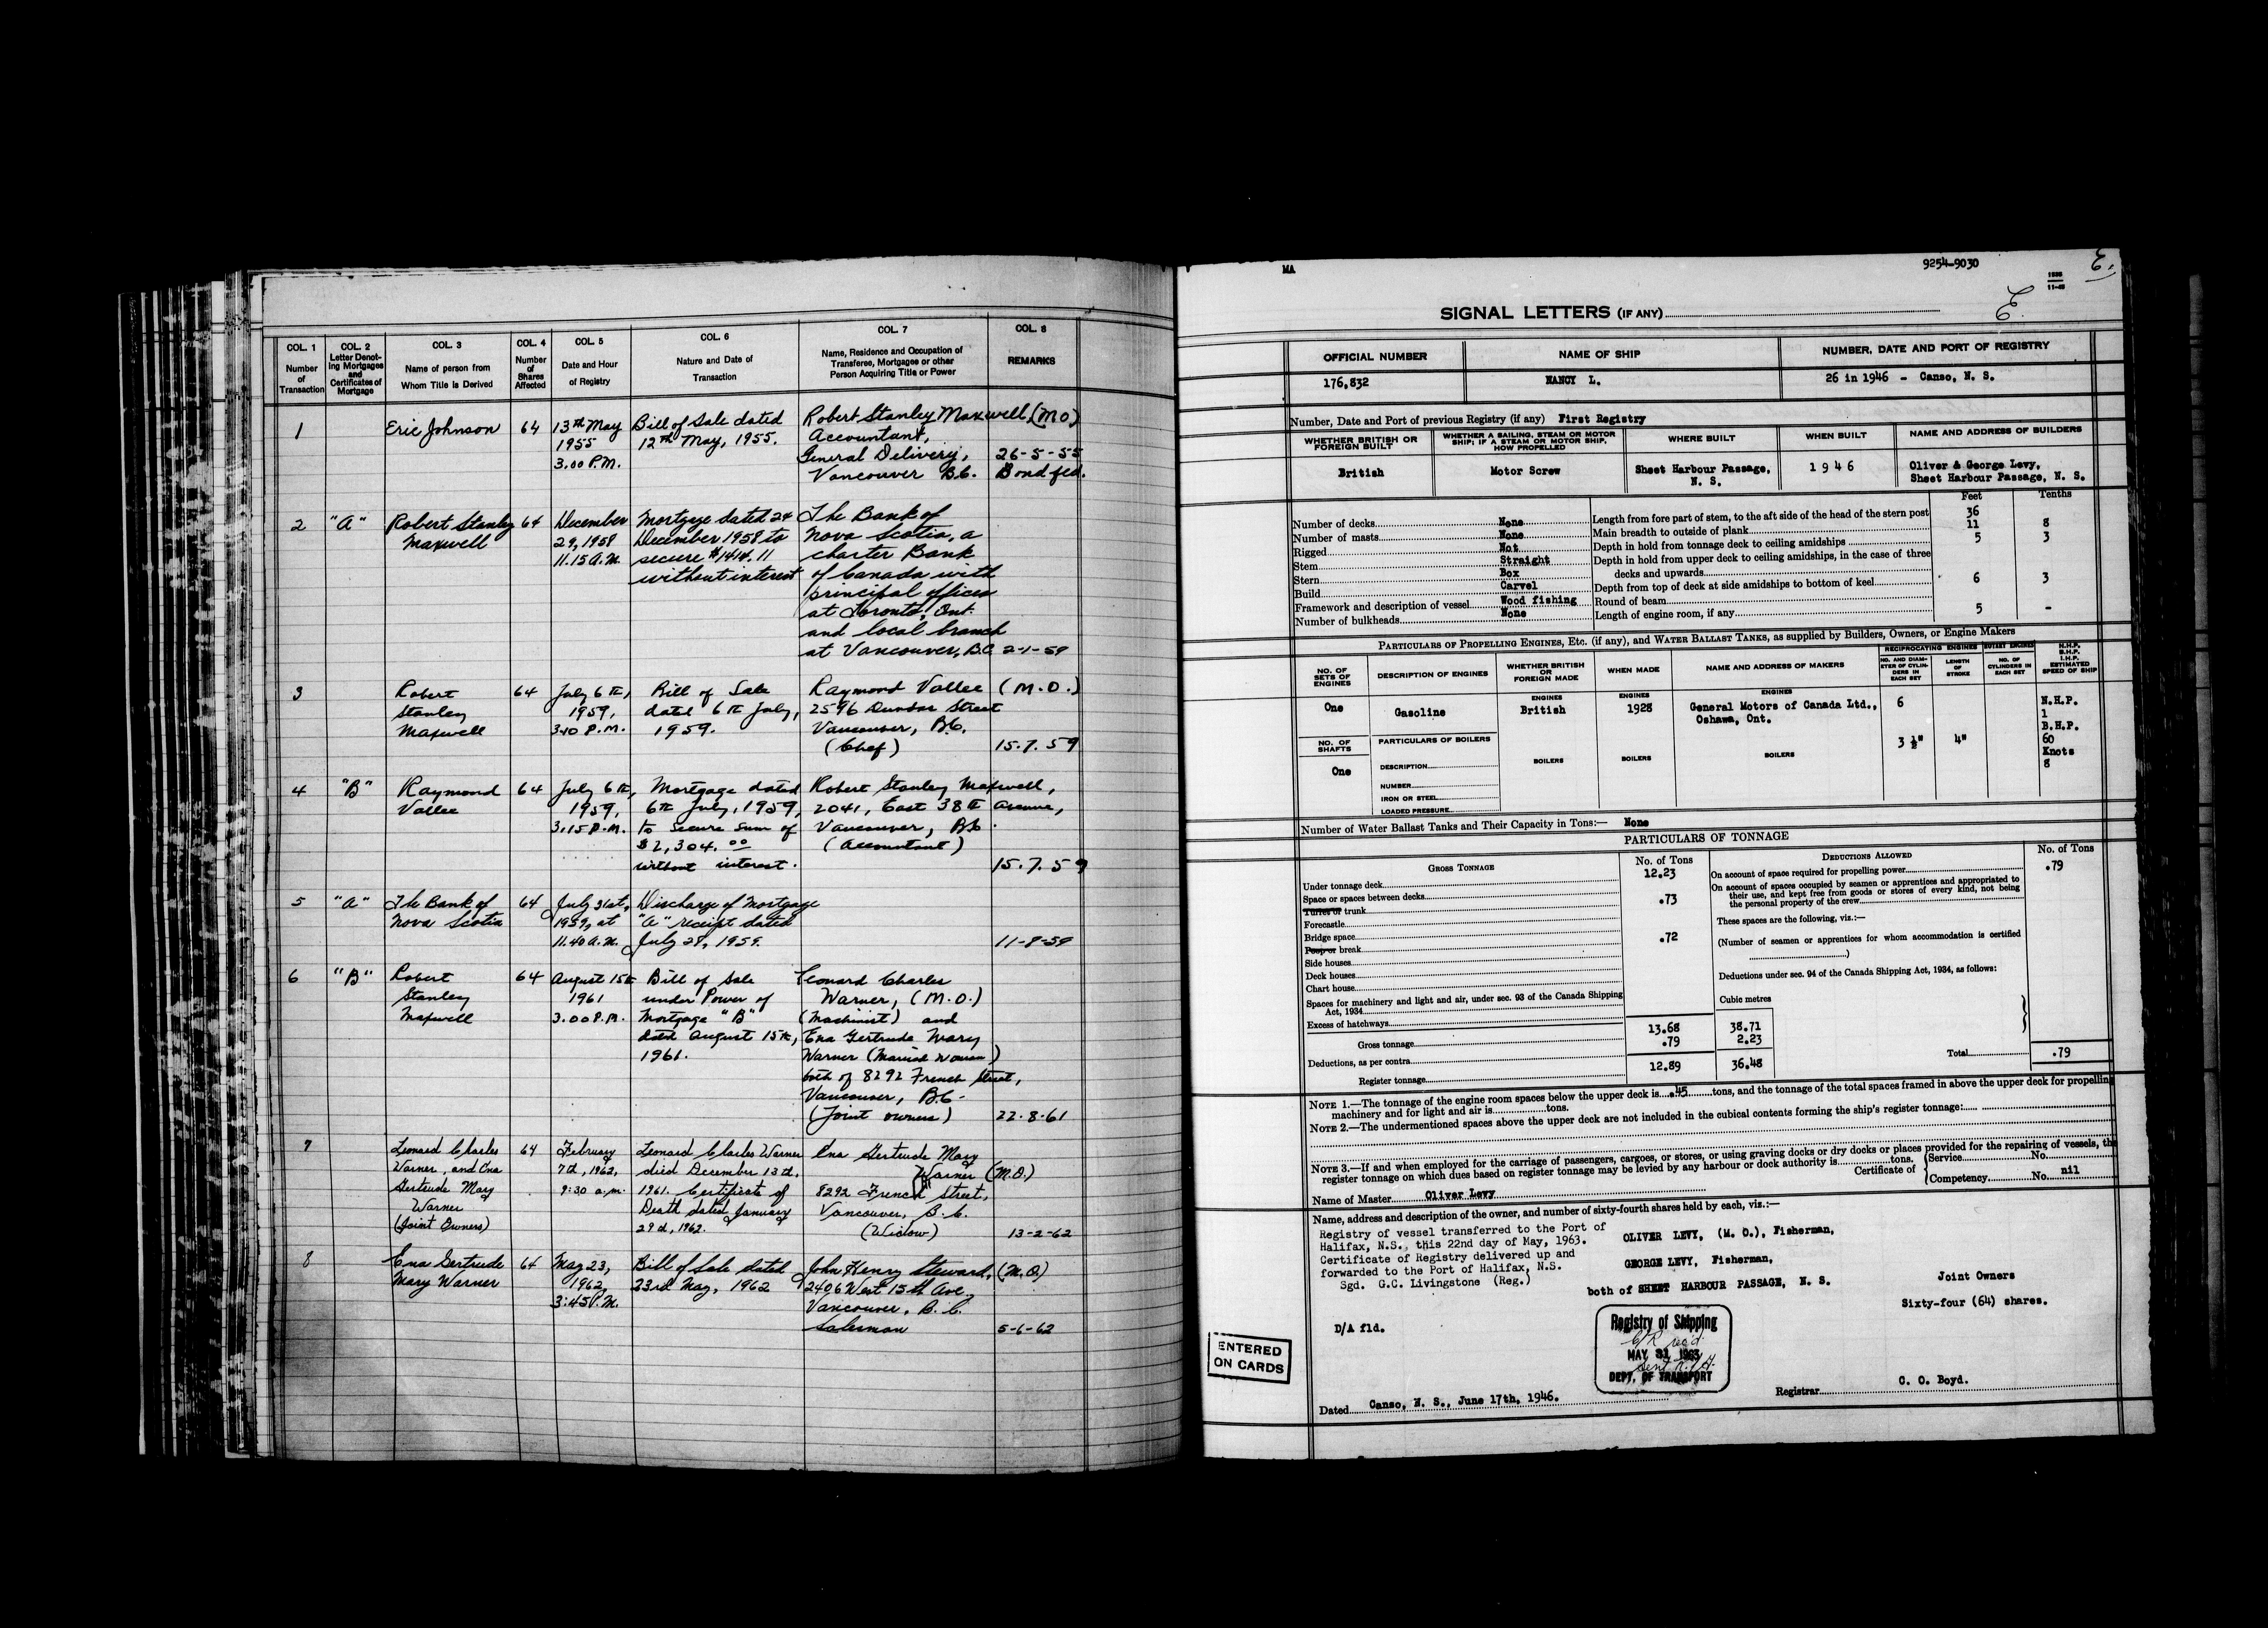 COL. 1
Number
of
Transaction
COL. 2
Letter Denot-
ing Mortgages
and
Certificates of
Mortgage
COL. 3
Name of person from
Whom Title is Derived
COL. 4
Number
of
Shares
Affected
COL. 5
Date and Hour
of Registry
COL. 6
Nature and Date of
Transaction
COL. 7
Name, Residence and Occupation of
Transferee, Mortgagee or other
Person Acquiring Title or Power
COL. 8
REMARKS
1 Eric Johnson 64 13th May Bill of Sale dated Robert Stanley Maxwell (M O)
1955 12th May, 1955. Accountant,
3.00 P.M. General Delivery, 26-5-55
Vancouver B.C. Bond fld.
2 "A" Robert Stanley 64 December Mortgage dated 24 The Bank of
Maxwell 29, 1958 December 1958 to Nova Scotia, a
11.15 A.M. secure $1414.11 charter Bank
without interest of Canada with
principal offices
at Toronto, Ont.
and local branch
at Vancouver, B.C. 2-1-59
3 Robert 64 July 6th, Bill of Sale Raymond Vallee (M.O.)
Stanley 1959, dated 6th July, 2596 Dundas Street
Maxwell 3.10 P.M. 1959. Vancouver, B.C.
(Chef) 15.7.59
4 "B" Raymond 64 July 6th, Mortgage dated Robert Stanley Maxwell,
Vallee 1959, 6th July, 1959, 2041, East 38th Avenue,
3.15 P.M. to secure sum of Vancouver, B.C.
$2,304.00 (Accountant)
without interest. 15.7.59
5 "A" The Bank of 64 July 31st, Discharge of Mortgage
Nova Scotia 1959, at "A" receipt dated
11.40 A.M. July 29, 1959. 11-8-59
6 "B" Robert 64 August 15th Bill of Sale Leonard Charles
Stanley 1961 under Power of Warner, (M.O.)
Maxwell 3.00 P.M. Mortgage "B" (Machinist) and
dated August 15th, Ena Gertrude Mary
1961. Warner (Married Woman)
both of 8292 French Street,
Vancouver, B.C.
(Joint owners) 22.8.61
7 Leonard Charles 64 February Leonard Charles Warner Ena Gertrude Mary
Warner, and Ena 7th, 1962, died December 13th, Warner (M.O.)
Gertrude Mary 9:30 a.m. 1961. Certificate of 8292 French Street,
Warner Death dated January Vancouver, B.C.
(Joint Owners) 29th, 1962. (Widow) 13-2-62
8 Ena Gertrude 64 May 23, Bill of Sale dated John Henry Steward, (M.O.)
Mary Warner 1962, 23rd May, 1962 2406 West 15th Ave.,
3:45 P.M. Vancouver, B.C.
Salesman 5-6-62
MA
9254-9030
E.
11-45
E.
SIGNAL LETTERS (IF ANY)
OFFICIAL NUMBER NAME OF SHIP NUMBER, DATE AND PORT OF REGISTRY
176,832 NANCY L. 26 in 1946 - Canso, N. S.
Number, Date and Port of previous Registry (if any) First Registry
WHETHER BRITISH OR
FOREIGN BUILT
WHETHER A SAILING, STEAM OR MOTOR
SHIP; IF A STEAM OR MOTOR SHIP,
HOW PROPELLED
WHERE BUILT
WHEN BUILT
NAME AND ADDRESS OF BUILDERS
British Motor Screw Sheet Harbour Passage, 1 9 4 6 Oliver & George Levy,
N. S. Sheet Harbour Passage, N. S.
Feet Tenths
Number of decks None
Number of masts None
Rigged Not
Stem Straight
Stern Box
Build Carvel
Framework and description of vessel Wood fishing
Number of bulkheads None
Length from fore part of stem, to the aft side of the head of the stern post 36
Main breadth to outside of plank 11 8
Depth in hold from tonnage deck to ceiling amidships 5 3
Depth in hold from upper deck to ceiling amidships, in the case of three
decks and upwards
Depth from top of deck at side amidships to bottom of keel 6 3
Round of beam
Length of engine room, if any 5 -
PARTICULARS OF PROPELLING ENGINES, ETC. (if any), and WATER BALLAST TANKS, as supplied by Builders, Owners, or Engine Makers
NO. OF
SETS OF
ENGINES
DESCRIPTION OF ENGINES
WHETHER BRITISH
OR
FOREIGN MADE
WHEN MADE
NAME AND ADDRESS OF MAKERS
RECIPROCATING ENGINES
NO. AND DIAM-
ETER OF CYLIN-
DERS IN
EACH SET
LENGTH
OF
STROKE
ROTARY ENGINES
NO. OF
CYLINDERS IN
EACH SET
N.H.P.
B.H.P.
I.H.P.
ESTIMATED
SPEED OF SHIP
ENGINES ENGINES ENGINES
One Gasoline British 1928 General Motors of Canada Ltd., 6 N.H.P.
Oshawa, Ont. 1
B.H.P.
NO. OF
SHAFTS
PARTICULARS OF BOILERS
3 ½" 4" 60
Knots
8
BOILERS BOILERS BOILERS
One
DESCRIPTION
NUMBER
IRON OR STEEL
LOADED PRESSURE
Number of Water Ballast Tanks and Their Capacity in Tons:— None
PARTICULARS OF TONNAGE
GROSS TONNAGE No. of Tons DEDUCTIONS ALLOWED No. of Tons
Under tonnage deck 12.23
Space or spaces between decks
Turret or trunk .73
Forecastle
Bridge space
Poop or break .72
Side houses
Deck houses
Chart house
Spaces for machinery and light and air, under sec. 93 of the Canada Shipping
Act, 1934
Excess of hatchways
Gross tonnage 13.68 38.71
Deductions, as per contra .79 2.23
Register tonnage 12.89 36.48
On account of space required for propelling power .79
On account of spaces occupied by seamen or apprentices and appropriated to
their use, and kept free from goods or stores of every kind, not being
the personal property of the crew
These spaces are the following, viz.:—
(Number of seamen or apprentices for whom accommodation is certified
)
Deductions under sec. 94 of the Canada Shipping Act, 1934, as follows:
Cubic metres
Total .79
NOTE 1.—The tonnage of the engine room spaces below the upper deck is .45 tons, and the tonnage of the total spaces framed in above the upper deck for propelling
machinery and for light and air is tons.
NOTE 2.—The undermentioned spaces above the upper deck are not included in the cubical contents forming the ship's register tonnage:
NOTE 3.—If and when employed for the carriage of passengers, cargoes, or stores, or using graving docks or dry docks or places provided for the repairing of vessels, the
register tonnage on which dues based on register tonnage may be levied by any harbour or dock authority is tons.
Certificate of Service No.
Competency No. nil
Name of Master Oliver Levy
Name, address and description of the owner, and number of sixty-fourth shares held by each, viz.:—
Registry of vessel transferred to the Port of
Halifax, N.S., this 22nd day of May, 1963.
Certificate of Registry delivered up and
forwarded to the Port of Halifax, N.S.
Sgd. G.C. Livingstone (Reg.)
OLIVER LEVY, (M. O.), Fisherman,
GEORGE LEVY, Fisherman,
both of SHEET HARBOUR PASSAGE, N. S.
Joint Owners
Sixty-four (64) shares.
D/A fld.
ENTERED
ON CARDS
Registry of Shipping
C/R rec'd
MAY 31 1963
DEPT. OF TRANSPORT
Dated Canso, N. S., June 17th, 1946.
Registrar C. O. Boyd.